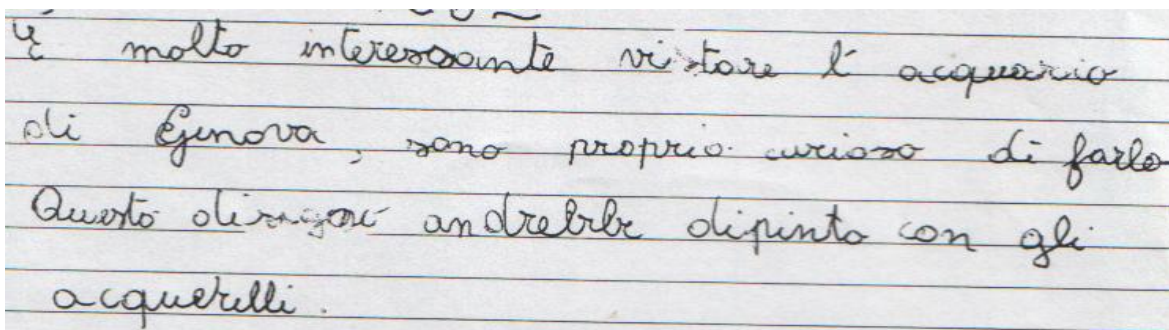 È molto interessante vistare l' acquario
di Genova, sono proprio curioso di farlo
Questo andrebbe dipinto con gli
acquerelli.